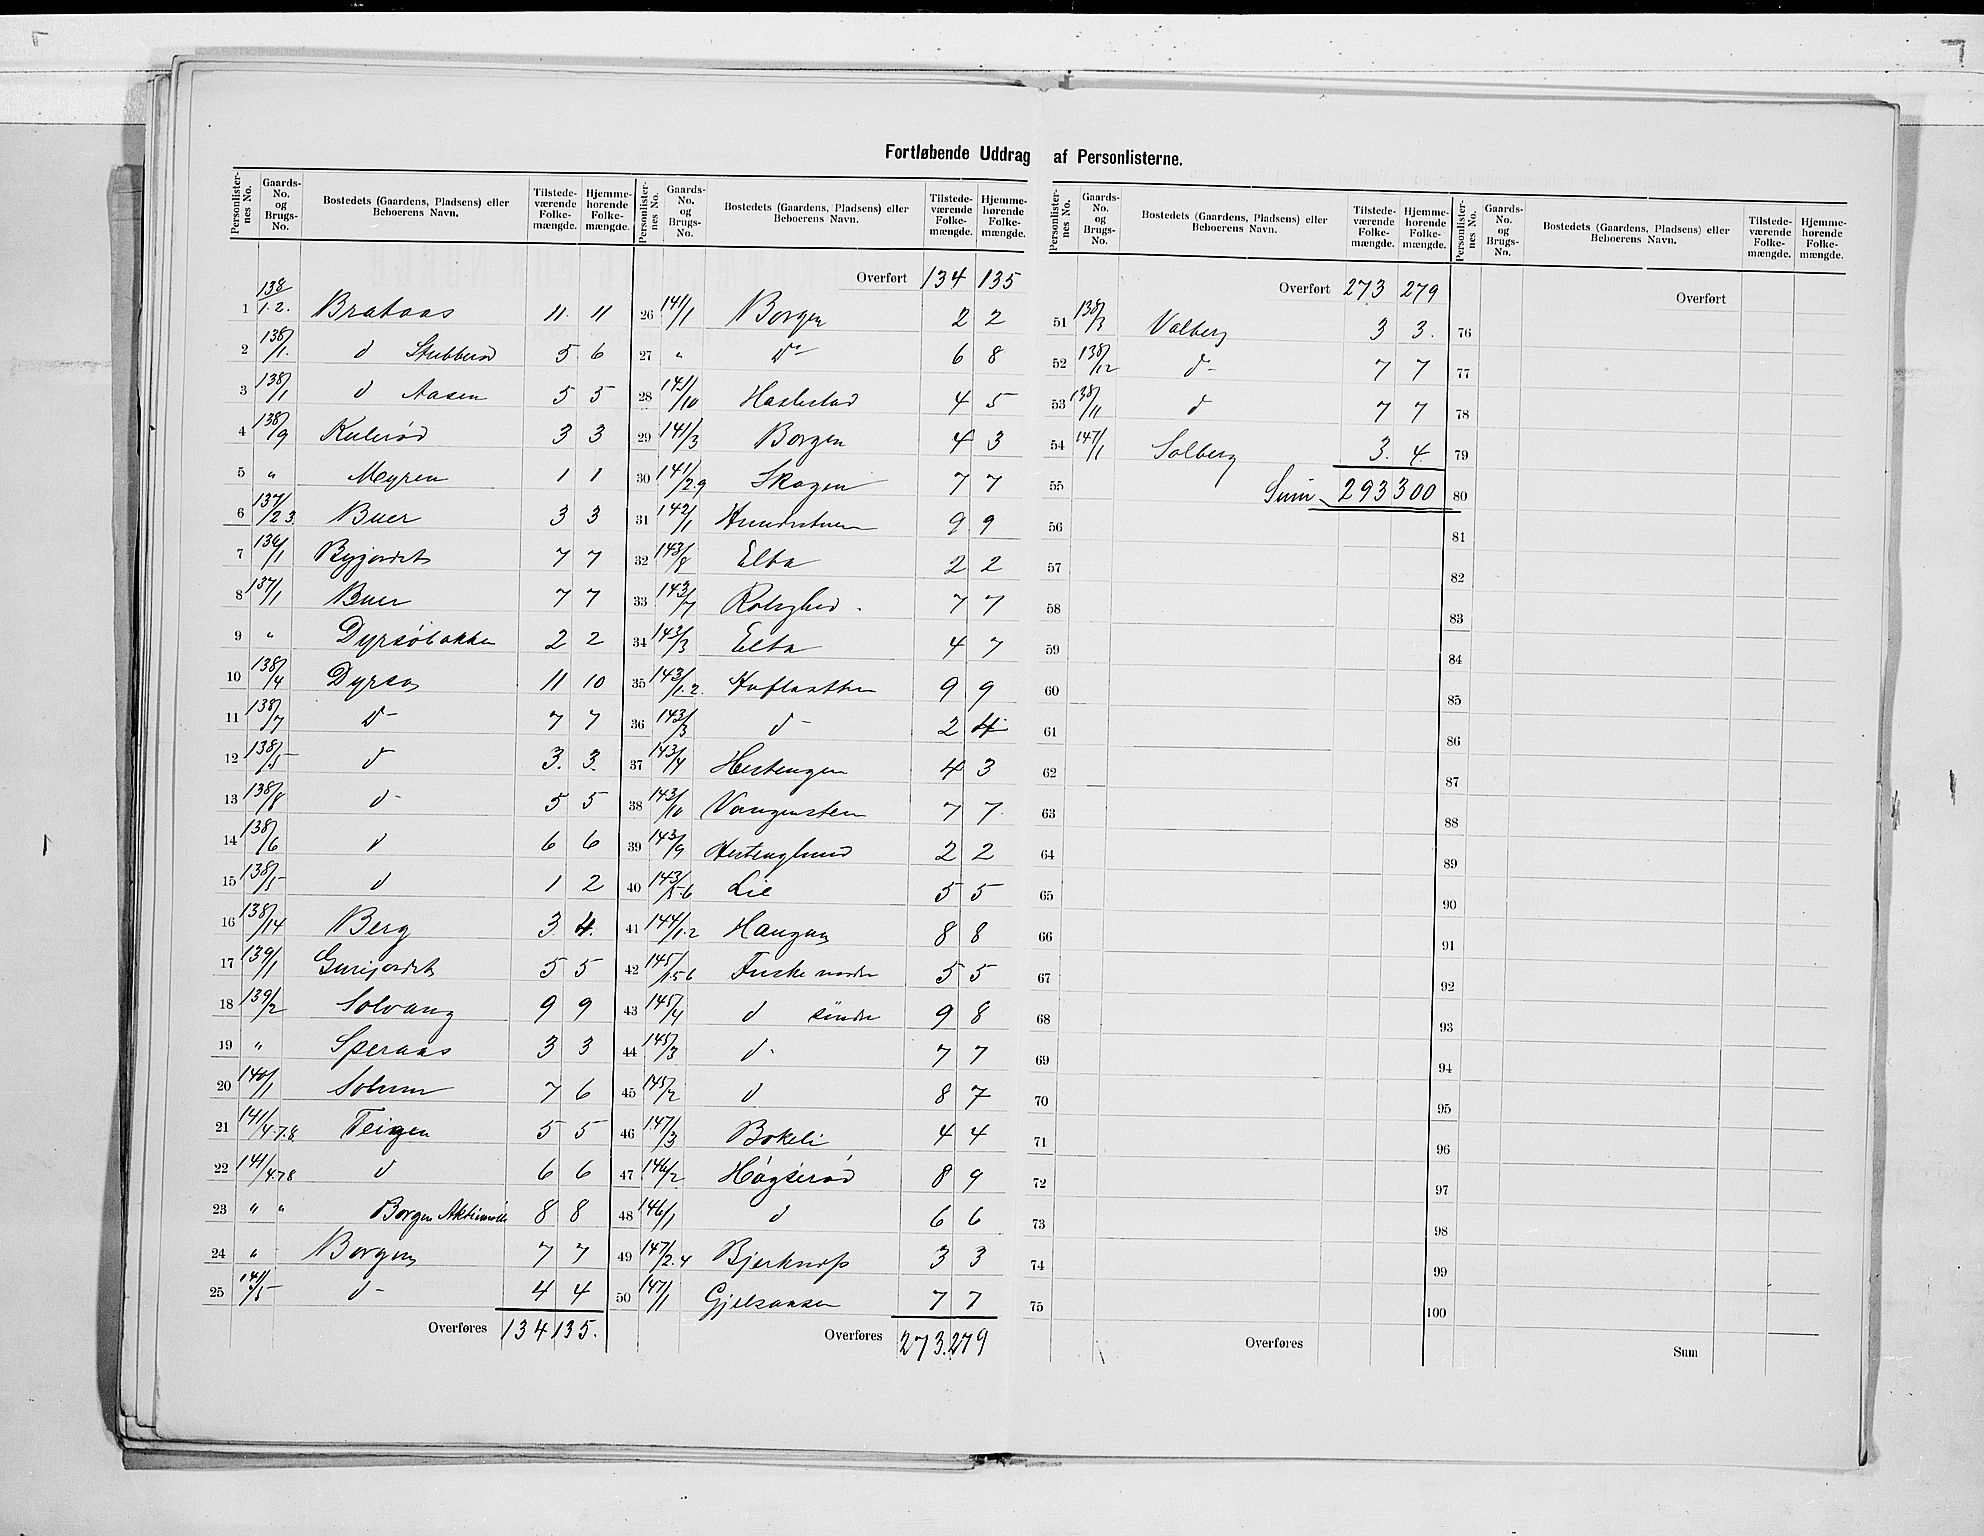 Fortløbende Uddrag af Personlisterne.
Personlister-nes No. Gaards-No. og Brugs-No. Bostedets (Gaardens, Pladsens) eller Beboerens Navn. Tilstede-værende Folke-mængde. Hjemme-hørende Folke-mængde.
1 138/1.2. Brataas 11. 11
2 138/1. d Stubberød 5. 6
3 138/1 d Aasen 5 5
4 138/9 Kulerød 3 3
5 " Myren 1 1
6 137/2 3. Buer 3 3
7 136/1 Bygjordet 7 7
8 137/1 Buer 7 7
9 " Dyrsøbakken 2 2
10 138/4 Dyrsø 11 10
11 138/7 d- 7 7
12 138/5 d 3. 3.
13 138/8 d- 5 5
14 138/6 d 6 6
15 138/5 d 1 2
16 138/14 Berg 3 4.
17 139/1 Gurijordet 5 5
18 139/2 Solvang 9 9
19 " Speraas 3 3
20 140/1 Solum 7 6
21 141/4.7.8 Teigen 5 5
22 141/4.7.8 d 6 6
23 " " Borgen Aktiemølle 8 8
24 " Borgen 7 7
25 141/5 d- 4 4
Overføres 134 135.
Personlister-nes No. Gaards-No. og Brugs-No. Bostedets (Gaardens, Pladsens) eller Beboerens Navn. Tilstede-værende Folke-mængde. Hjemme-hørende Folke-mængde.
Overført 134 135
26 141/1 Borgen 2 2
27 " do 6 8
28 141/10 Haslestad 4 5
29 141/3 Borgen 4 3
30 141/2.9 Skogen 7 7
31 142/1 Hundstuen 9 9
32 143/8 Elba 2 2
33 143/7 Rolighed. 7 7
34 143/3 Elba 4 7
35 143/1.2. 9 9
36 143/3 d- 2 4
37 143/4 Hestengen 4 3
38 143/10 Vangensten 7 7.
39 143/9 Hestenglund 2 2
40 143/5.6 Lie 5 5
41 144/1.2 Haugan 8 8
42 145/1.5.6 Fuske nordre 5 5
43 145/4 d søndre 9 8
44 145/3 d. 7 7
45 145/2 d 8 7
46 147/3 Bokeli 4 4
47 146/2 Høgterød 8 9
48 146/1 d 6 6
49 147/2.4 Bjerknæs 3 3
50 147/1 Gjelsaasen 7 7
Overføres 273. 279
Personlister-nes No. Gaards-No. og Brugs-No. Bostedets (Gaardens, Pladsens) eller Beboerens Navn. Tilstede-værende Folke-mængde. Hjemme-hørende Folke-mængde.
Overført 273 279
51 138/3 Valberg 3 3.
52 138/12 d- 7 7
53 138/11 d 7 7
54 147/1 Solberg 3. 4.
55 Sum 293 300
56
57
58
59
60
61
62
63
64
65
66
67
68
69
70
71
72
73
74
75
Overføres
Personlister-nes No. Gaards-No. og Brugs-No. Bostedets (Gaardens, Pladsens) eller Beboerens Navn. Tilstede-værende Folke-mængde. Hjemme-hørende Folke-mængde.
Overført
76
77
78
79
80
81
82
83
84
85
86
87
88
89
90
91
92
93
94
95
96
97
98
99
100
Sum